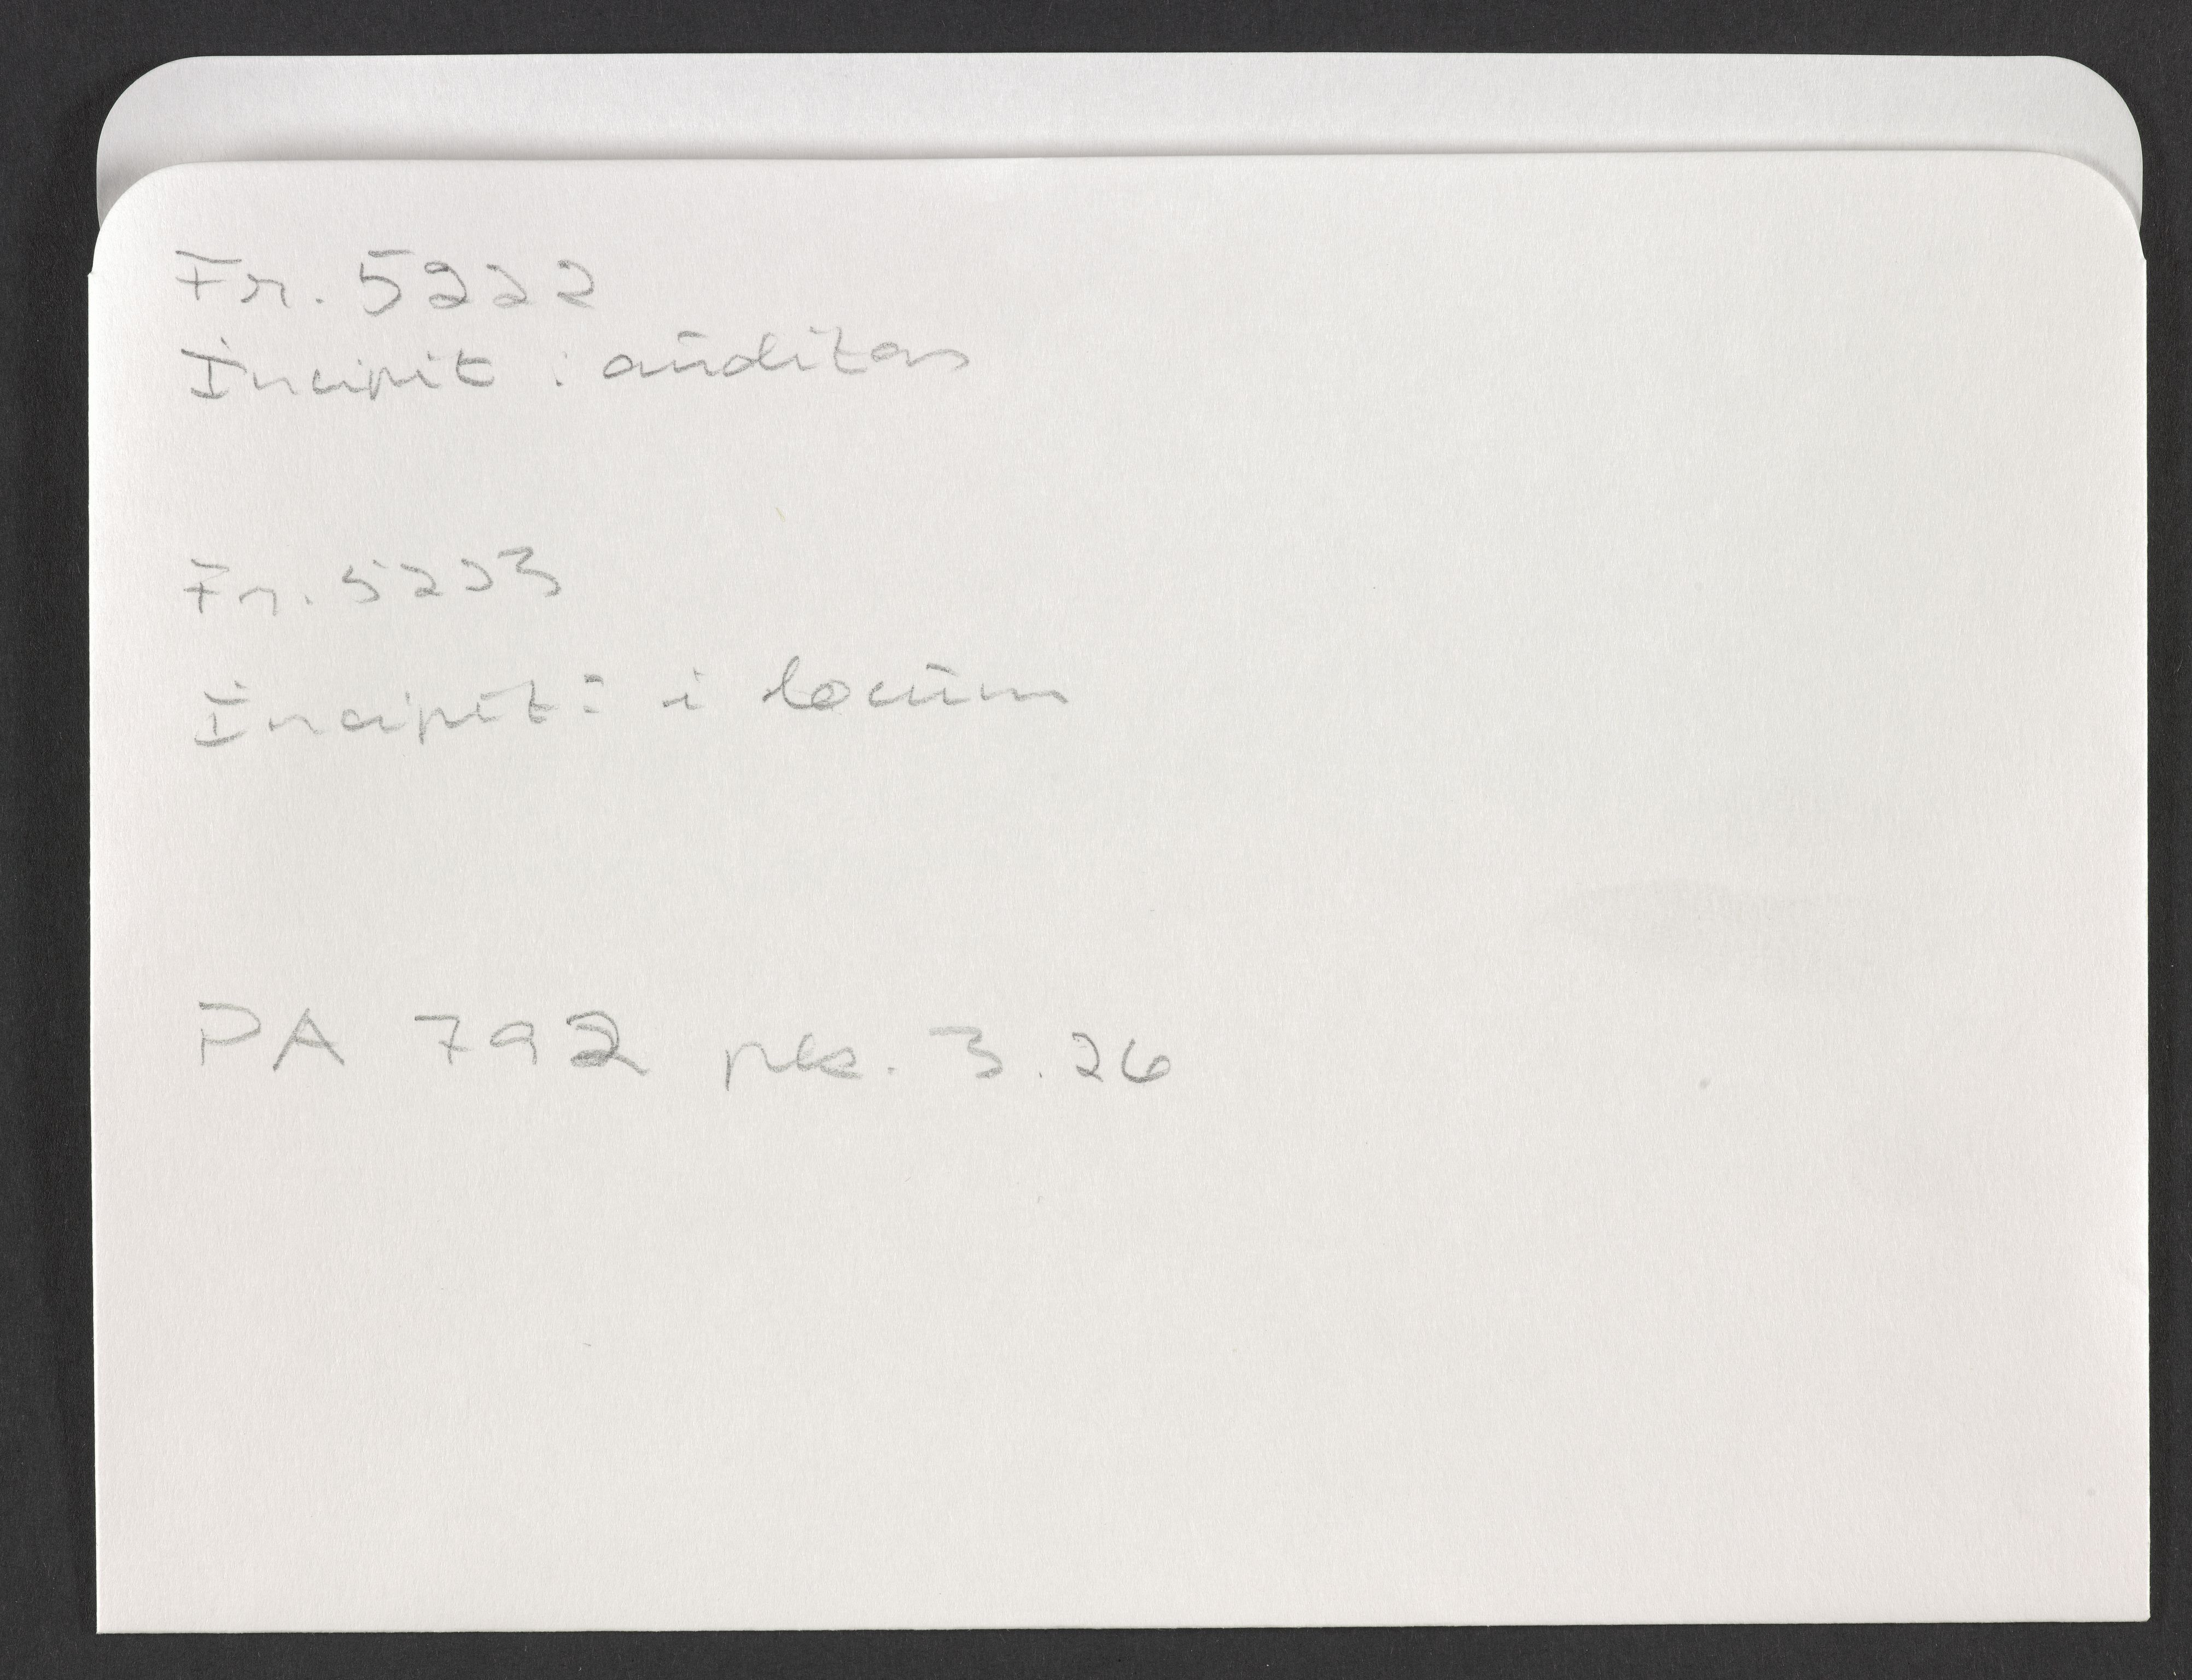 Fr. 5222
Incipit : auditas
Fr. 5223
Incipit: i locum
PA 792 pk. 3.26